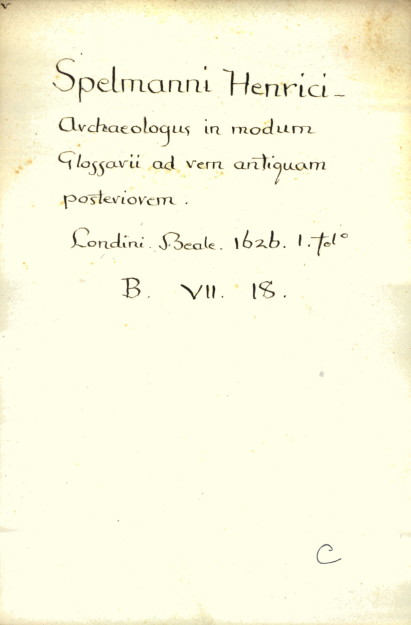 Spelmanni Henrici -
Archaeologus in modum
Glossarii ad rem antiquam
posteriorem.
Londini. Beale. 1626. 1. fol°
B. VII. 18.
C